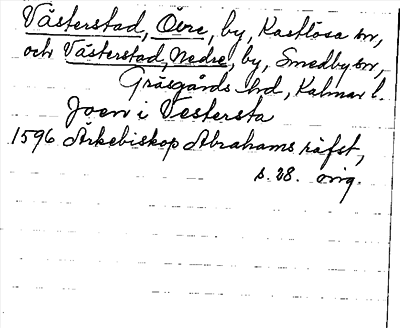 Västerstad, Övre, by, Kastlösa sn,
och Västerstad, Nedre, by, Smedby sn,
Gräsgårds hd, Kalmar l.
Joen i Vestersta
1596 Ärkebiskop Abrahams räfst,
s. 28. orig.